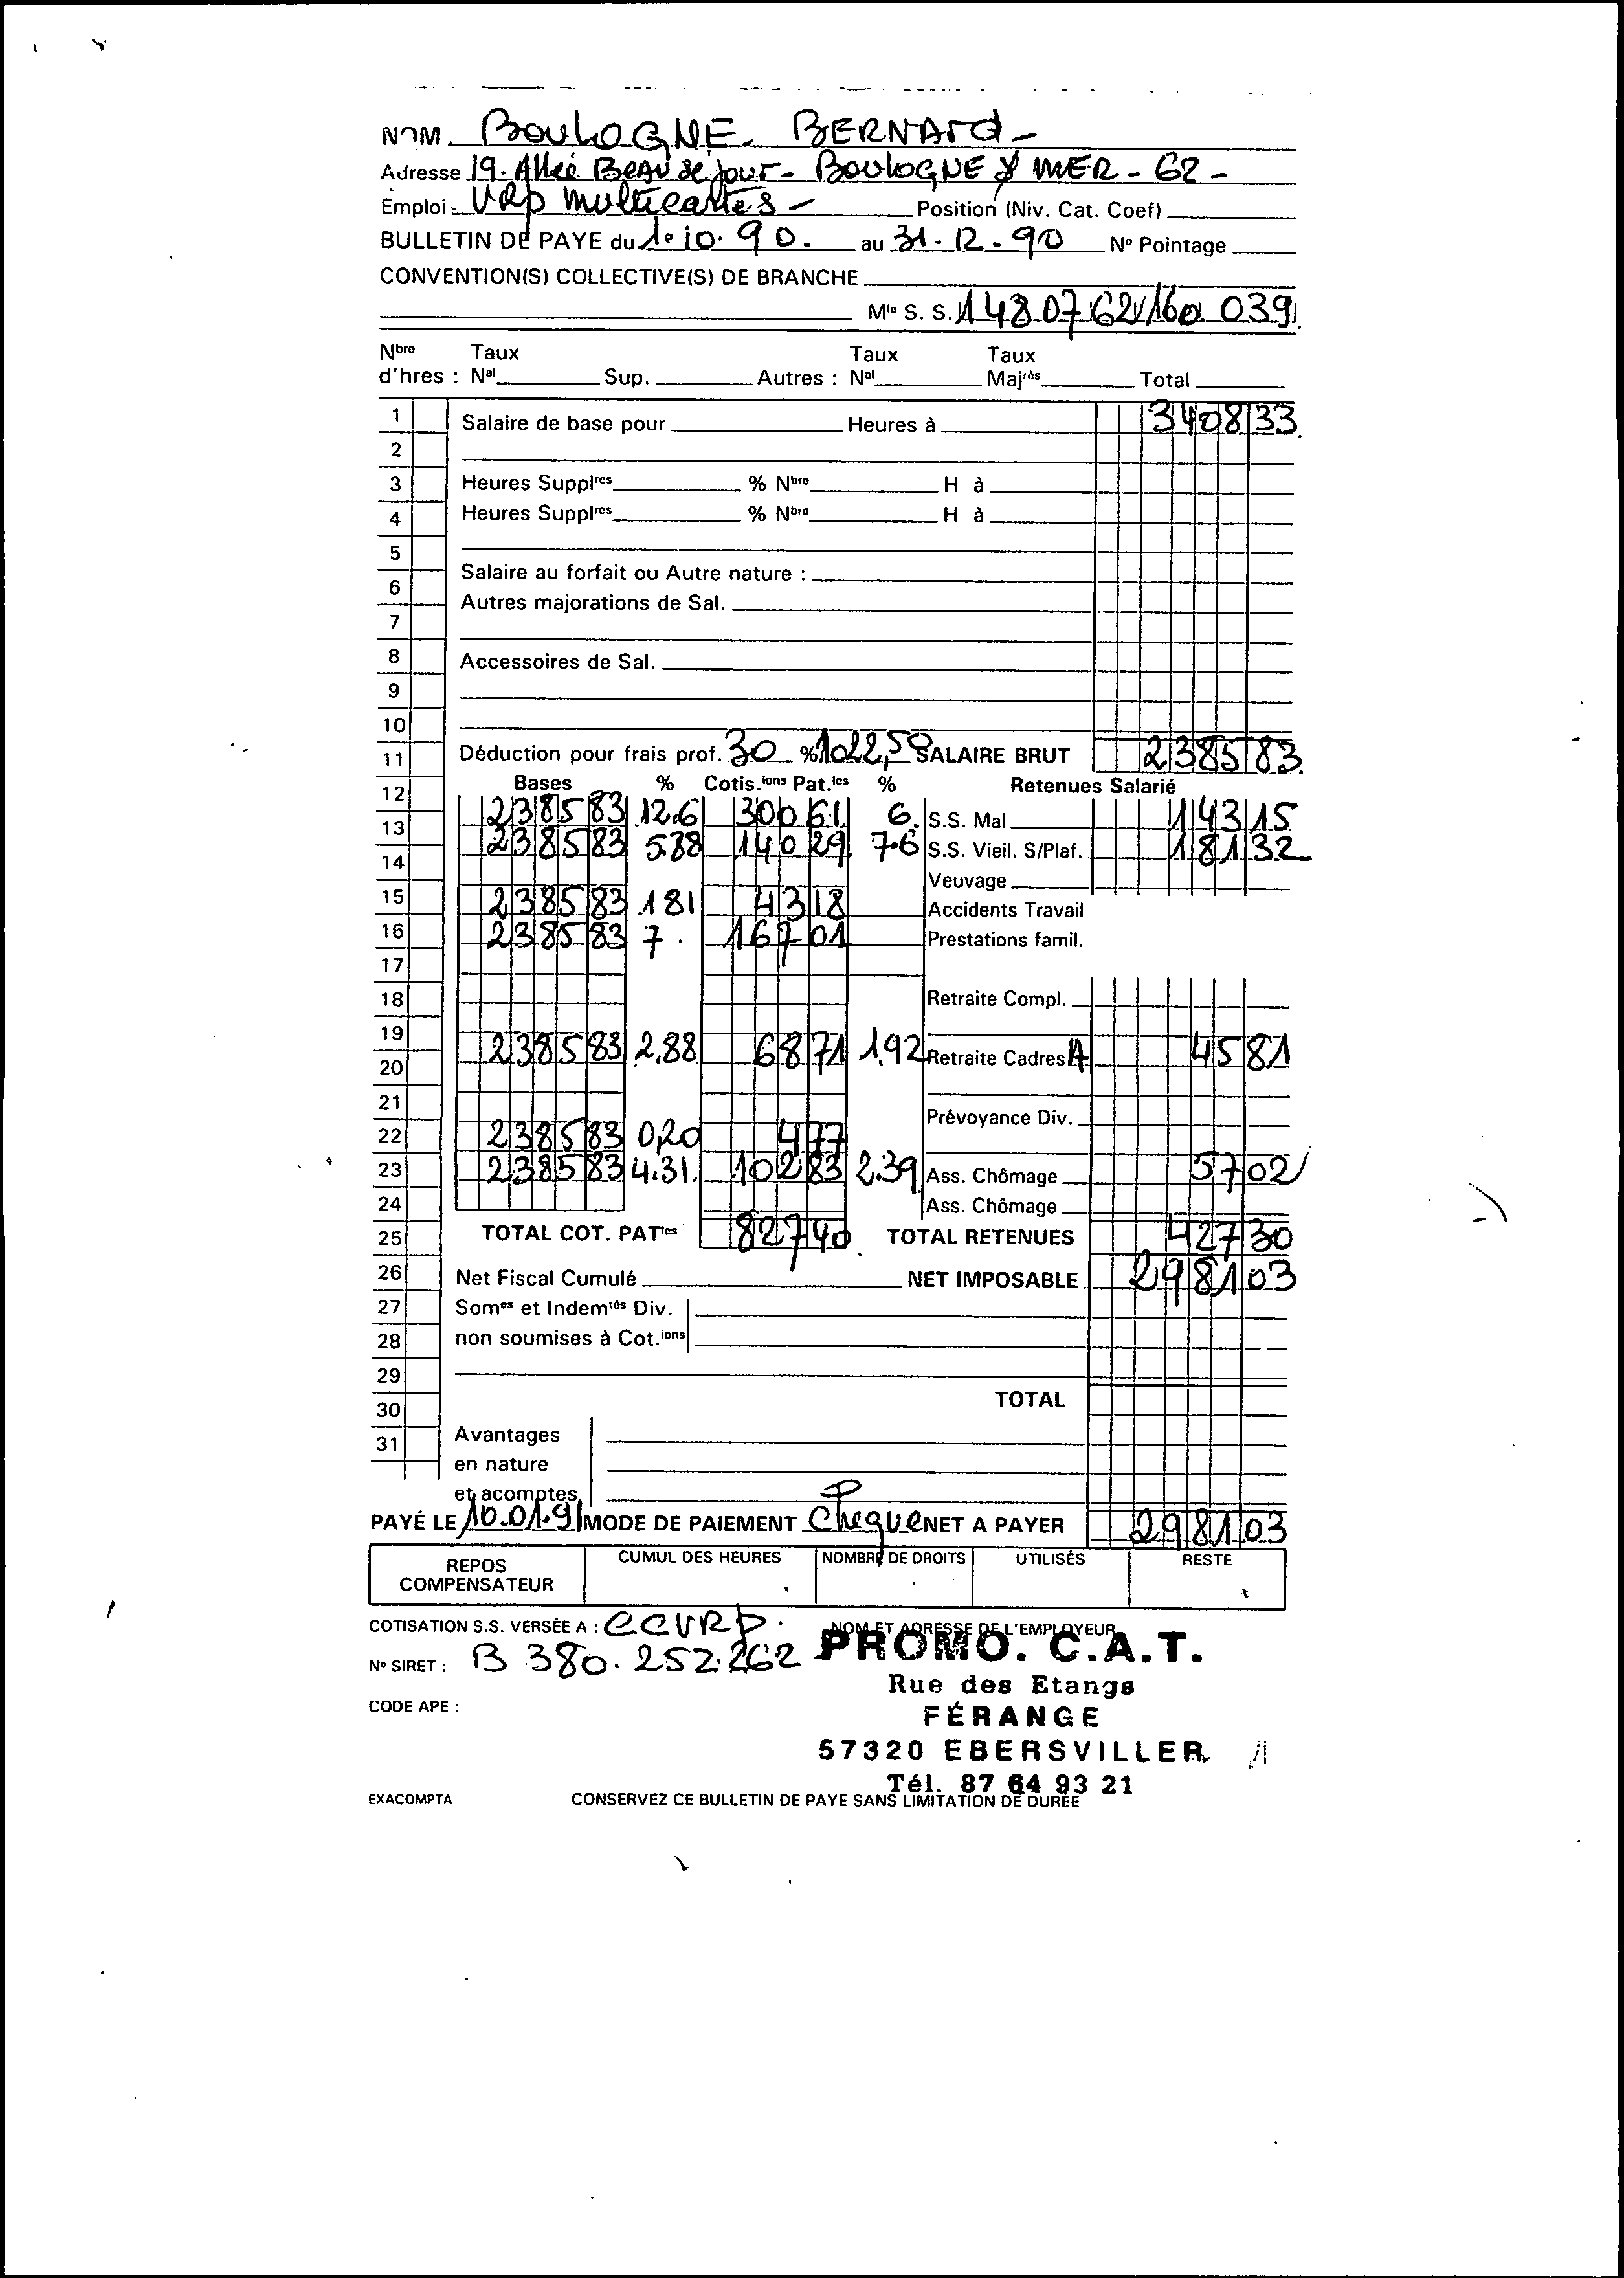 NOM. BOULOGNE. BERNARD -
Adresse 19. Allée BEAU séjour - BOULOGNE / MER - 62 -
Emploi - VRP multicartes - Position (Niv. Cat. Coef)
BULLETIN DE PAYE du 1.10.90. au 31.12.90 Nº Pointage
CONVENTION(S) COLLECTIVE(S) DE BRANCHE
Mle S. S. 1 48 07 62 160 039
Nbre Taux Taux Taux
d'hres : Nal Sup. Autres : Nal Majrés Total
1 Salaire de base pour Heures à 3408 33
2
3 Heures Supplres % Nbre H à
4 Heures Supplres % Nbre H à
5
6 Salaire au forfait ou Autre nature :
7 Autres majorations de Sal.
8 Accessoires de Sal.
9
10
11 Déduction pour frais prof. 30 % 1022,50 SALAIRE BRUT 2385 83
12 Bases % Cotis.ions Pat.les % Retenues Salarié
13 2385 83 12.6 300 61 6. S.S. Mal 143 15
14 2385 83 5.88 140 29 7.6 S.S. Vieil. S/Plaf. 181 32
Veuvage
15 2385 83 1 81 43 18 Accidents Travail
16 2385 83 7. 167 01 Prestations famil.
17
18 Retraite Compl.
19
20 2385 83 2,88 68 71 1.92 Retraite Cadres A 45 81
21
22 Prévoyance Div.
2385 83 0,20 4 77
23 2385 83 4.31. 102 83 2.39 Ass. Chômage 57 02
24 Ass. Chômage
25 TOTAL COT. PATles 827 40 TOTAL RETENUES 427 30
26 Net Fiscal Cumulé NET IMPOSABLE 2981 03
27 Somes et Indemtés Div.
28 non soumises à Cot.ions
29
30 TOTAL
31 Avantages
en nature
et acomptes
PAYÉ LE 10.01.91 MODE DE PAIEMENT Chèque NET A PAYER 2981 03
REPOS COMPENSATEUR CUMUL DES HEURES NOMBRE DE DROITS UTILISÉS RESTE
COTISATION S.S. VERSÉE A : CCVRP.
NOM ET ADRESSE DE L'EMPLOYEUR
Nº SIRET : B 380.252.262 PROMO. C.A.T.
Rue des Etangs
CODE APE :
FÉRANGE
57320 EBERSVILLER
Tél. 87 64 93 21
EXACOMPTA CONSERVEZ CE BULLETIN DE PAYE SANS LIMITATION DE DURÉE